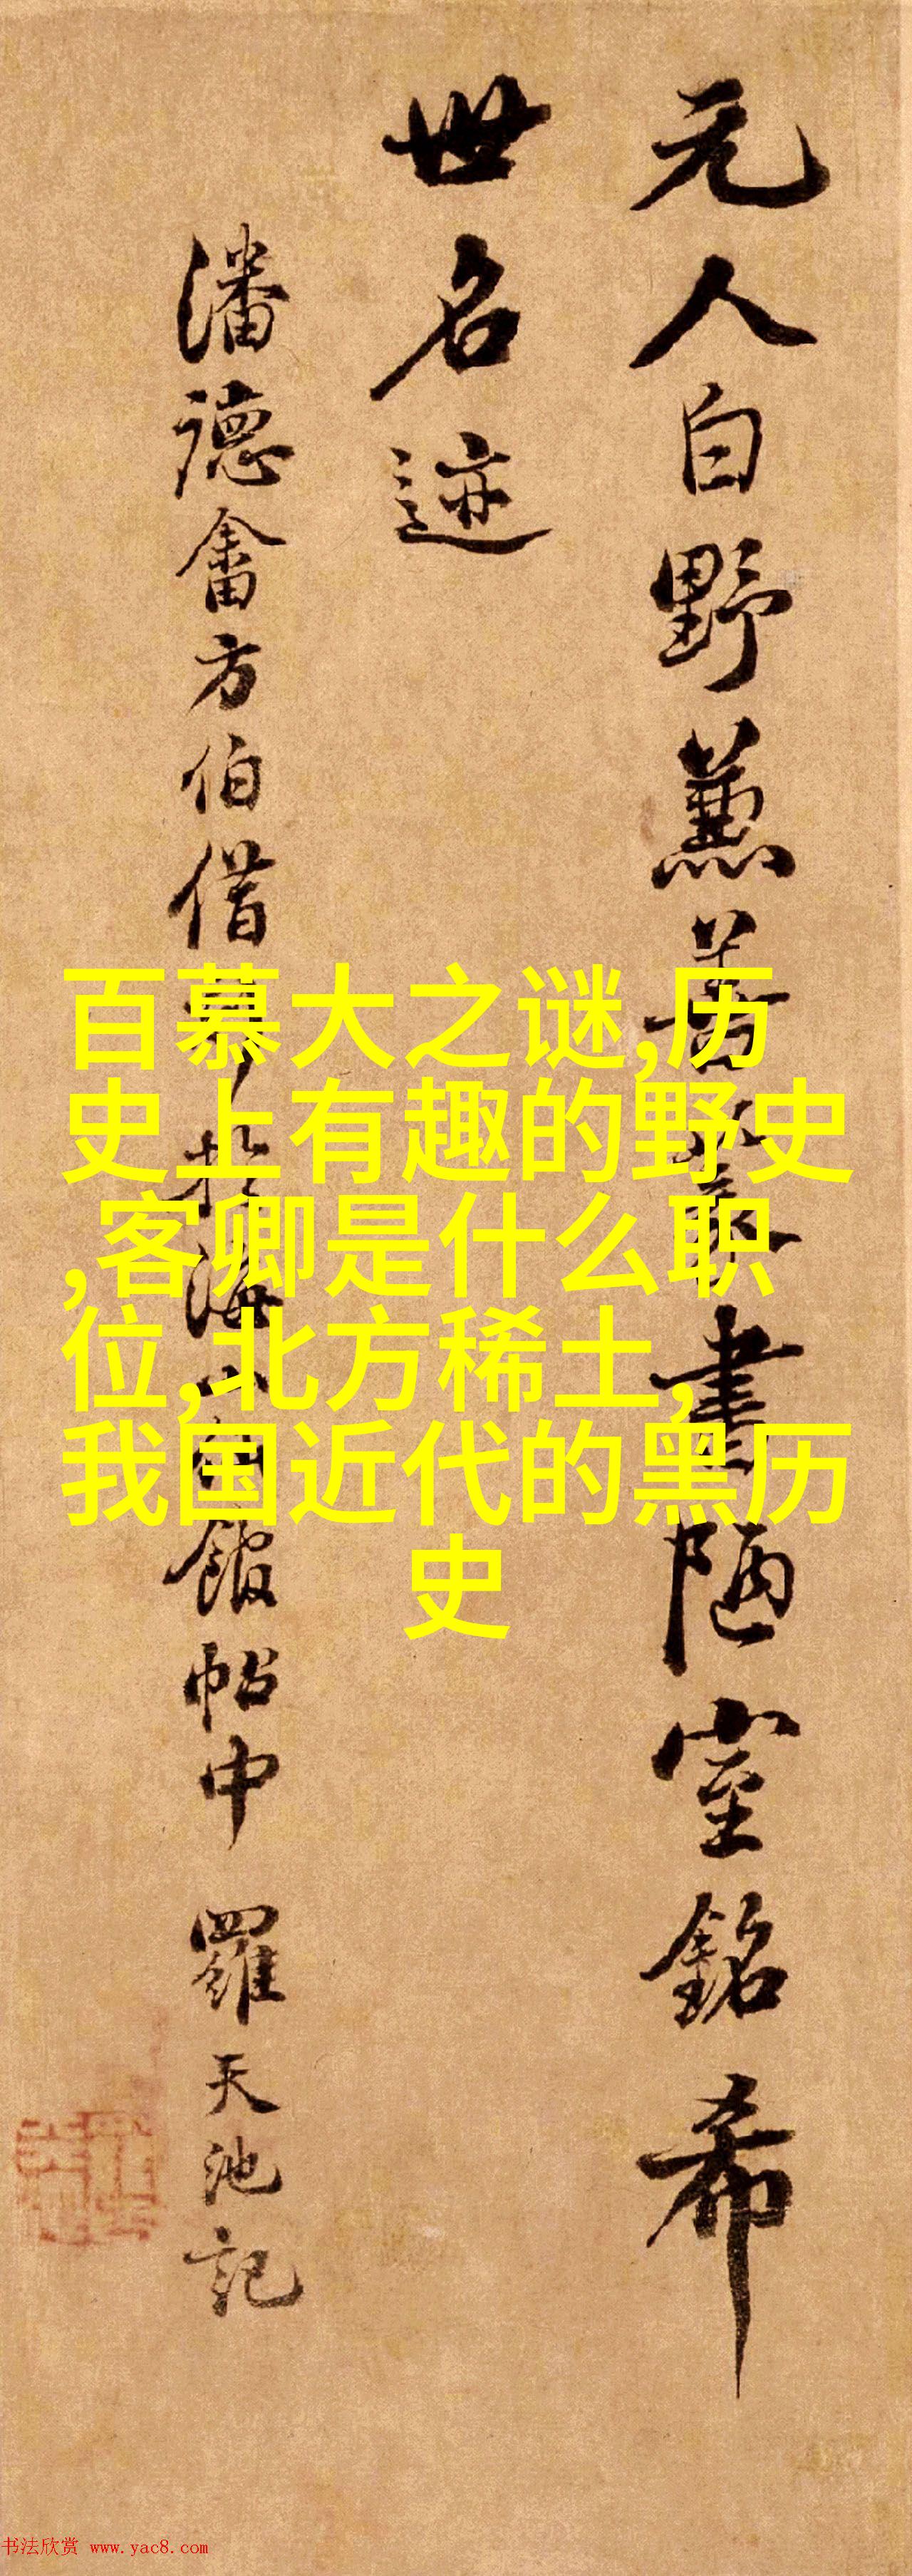 元人白野兼善篆書陋室銘希
世名迹
潘德畬方伯借於海山館帖中 羅天池記
百慕大之谜,历
史上有趣的野史
,客卿是什么职
位,北方稀土,
我国近代的黑历
史
书法欣赏 www.yac8.com